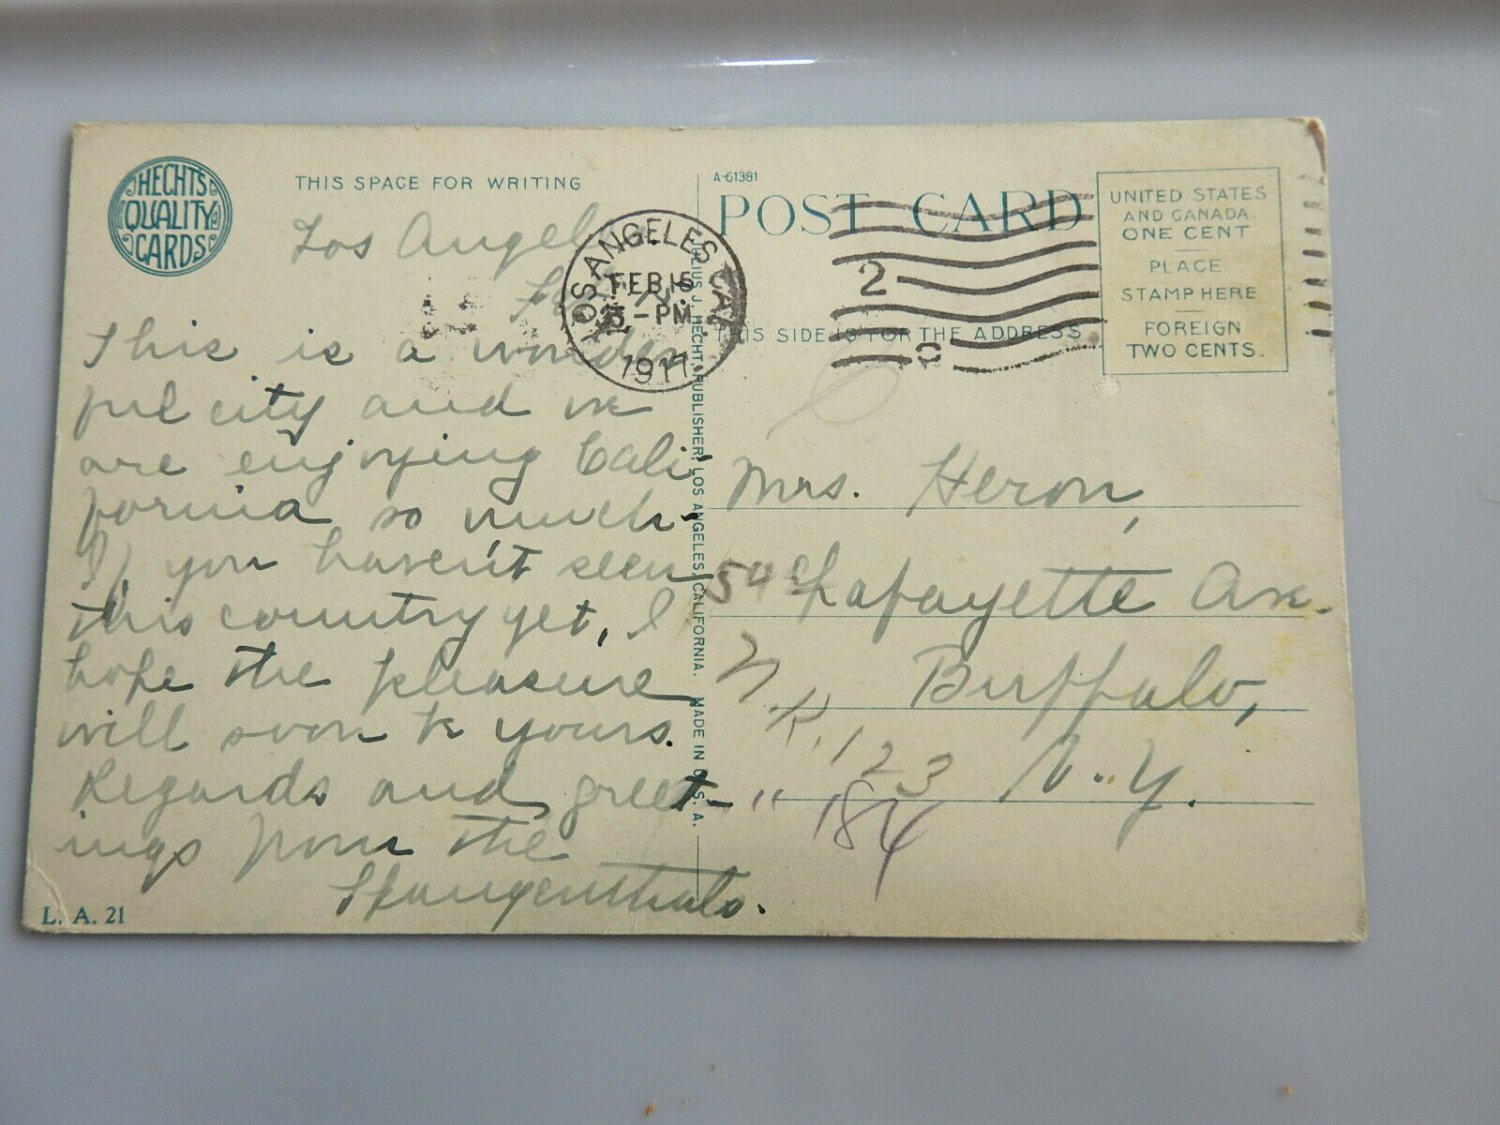 HECHTS
QUALITY
CARDS
THIS SPACE FOR WRITING
Los Angeles
This is a wonder
ful city and we
are enjoying Cali
fornia so much.
If you haven't seen
this country yet, I
hope the pleasure
will soon be yours.
Regards and greet-
ings from the
Spangenthals.
L. A. 21
JULIUS J. HECHT, PUBLISHER, LOS ANGELES, CALIFORNIA. MADE IN U. S. A.
LOS ANGELES, CAL.
FEB 15
5 - PM
1917
2
A-61381
POST CARD
THIS SIDE IS FOR THE ADDRESS
UNITED STATES
AND CANADA
ONE CENT
PLACE
STAMP HERE
FOREIGN
TWO CENTS.
Mrs. Heron,
54 Lafayette Ave.
Buffalo,
N.Y.
N.R. 123
" 184